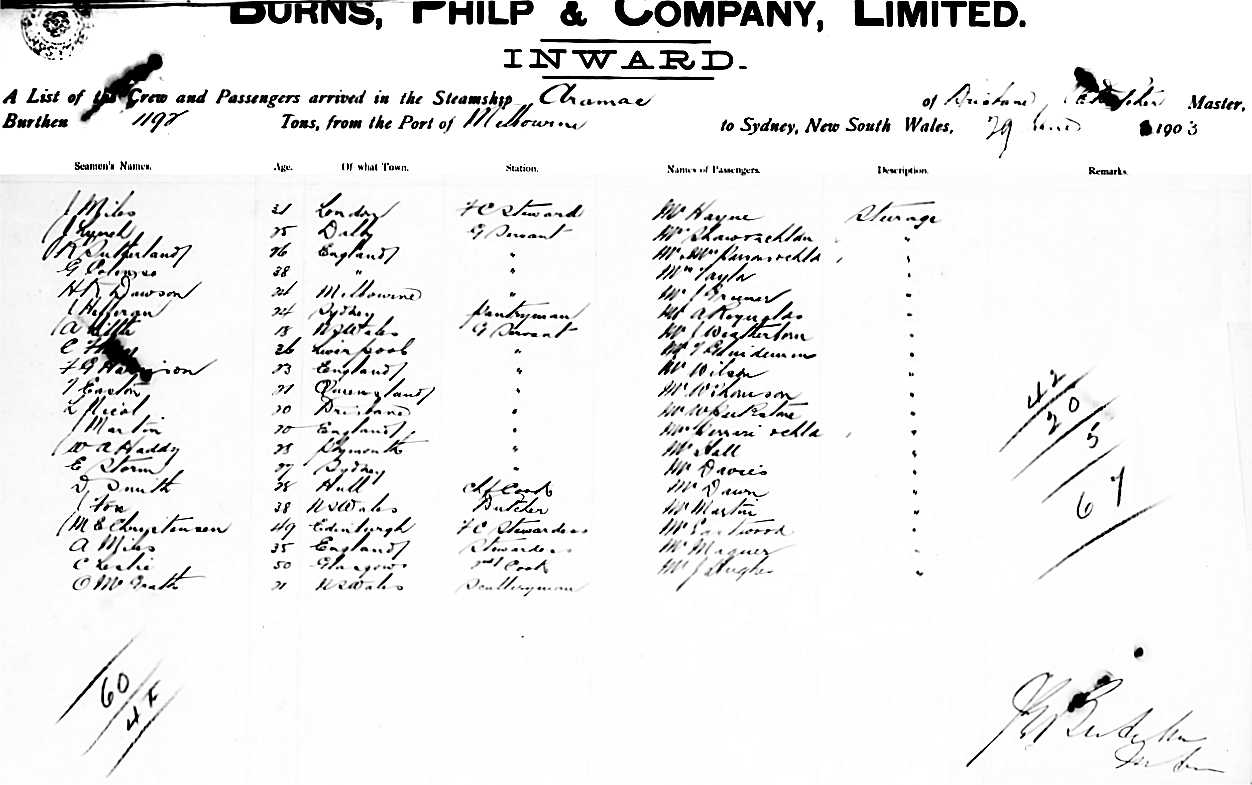 BURNS, PHILP & COMPANY, LIMITED.
INWARD.
A List of the Crew and Passengers arrived in the Steamship Aramac of Brisbane, Master,
Burthen 1192 Tons, from the Port of Melbourne to Sydney, New South Wales, 29 1903
Seamen's Names. Age. Of what Town. Station. Names of Passengers. Description. Remarks.
J Miles 31 London F C Steward Mr Hayne Steerage
J Lynch 25 Dalby G Servant Mrs Shaw & child "
R Sutherland 26 England " Mr & Mrs Parsons & child "
G 38 " " Mrs Taylor "
H R Dawson 24 Melbourne " Mr J "
Heffernan 24 Sydney Pantryman Mr A "
A 18 N S Wales G Servant Mr J "
C 26 Liverpool " Mr "
F G Harrison 23 England " Mr Wilson "
T Easton 21 Queensland " Mr W Thomson "
L Nicol 20 Brisbane " Mr W "
J Martin 20 England " Mrs & child "
W A Haddy 28 Plymouth " Mr Hall "
E Storm 27 Sydney " Mr Davies "
D Smith 28 Hull Chf Cook Mr Dawn "
J Fox 38 N S Wales Butcher Mr Martin "
M E Christensen 49 Edinburgh F C Stewardess Mr Eastwood "
A Miles 35 England Stewardess Mr "
C Leslie 50 Glasgow 2nd Cook Mr J Hughes "
O McGrath 21 N S Wales Sculleryman
42
20
5
67
60